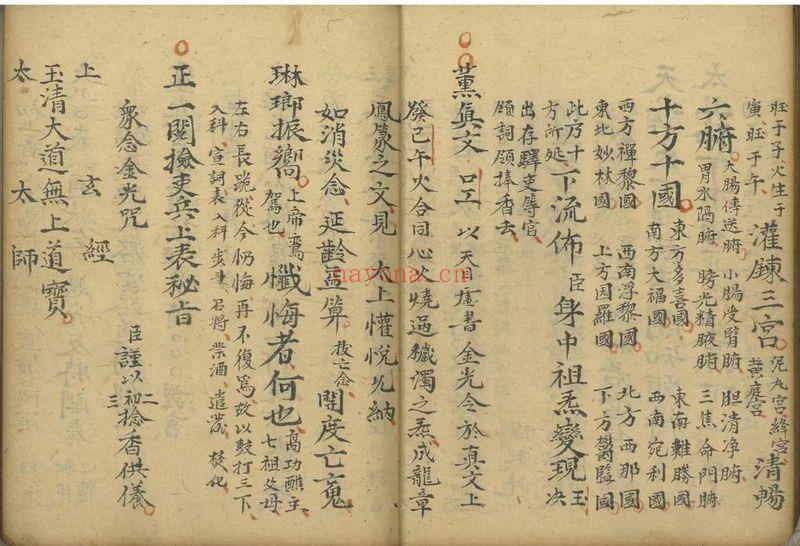 旺于子子火生于
寅旺于午
灌錬三宫
泥丸宫絳宫
黄庭宫
清暢
六腑
大腸傳送腑 小腸受腎腑 胆清净腑
胃水隔腑 膀光精腋腑 三焦命門腑
十方十國
東方多喜國 東南難勝國
南方大福國 西南宛利國
西方禪黎國 西南浮黎國 北方西那國
東北妙林國 上方园羅國 下方鬱監國
此乃十
方所处
下流佈
臣
身中祖炁變現
王
决
出存驛吏等官
頋詞頋捧香去
薰真文
口工
以天目虚書金光令於真文上
癸巳午火合同心火燒過穢濁之炁成龍章
鳳篆之文見 太上懽悦允納
如消灾念 延齡益筭
拔亡念
開度亡䰟
琳瑯振嚮
上帝焉
駕也
懺悔者何也
高功醮主
七祖父母
左右長跪從今忏悔再不復爲故以鼓打三下
入科宣詞表入科步声召将祭酒遣发焚化
正一閱撿吏兵上表秘旨
衆念金光咒
臣
謹以初
二
三
捻香供儀
上玄經
玉清大道無上道寳
太太師
nayona.cn